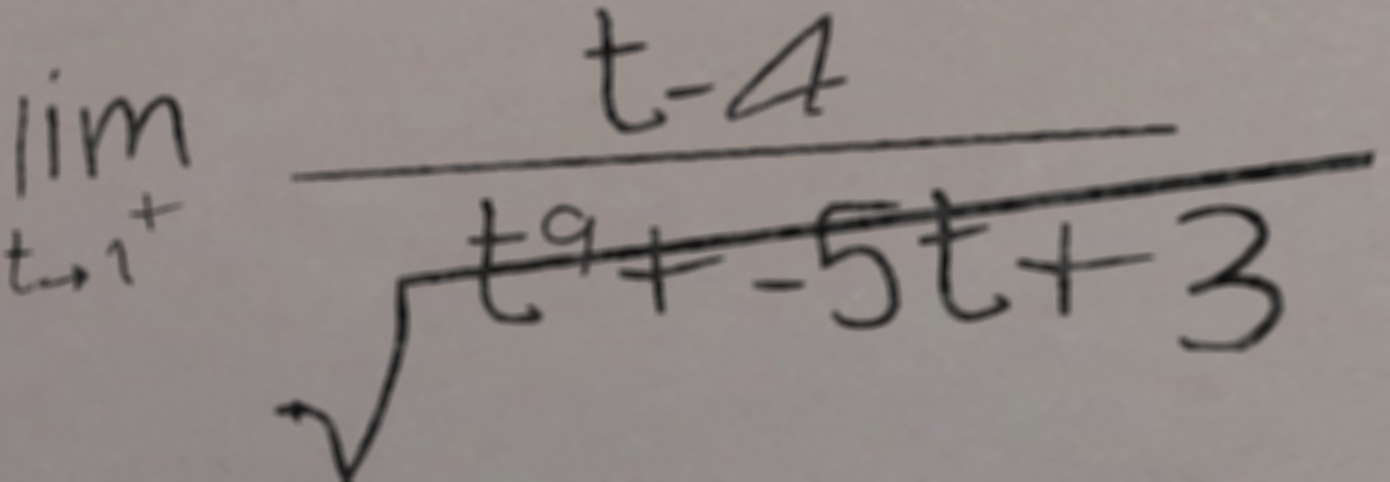 lim t→1⁺ (t-4)/√(t⁹+-5t+3)